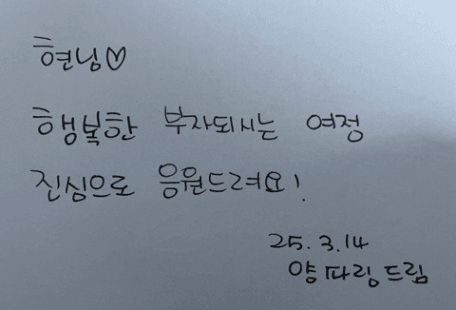 현님♡
행복한 부자되시는 여정
진심으로 응원드려요!
25. 3. 14
양파링드림